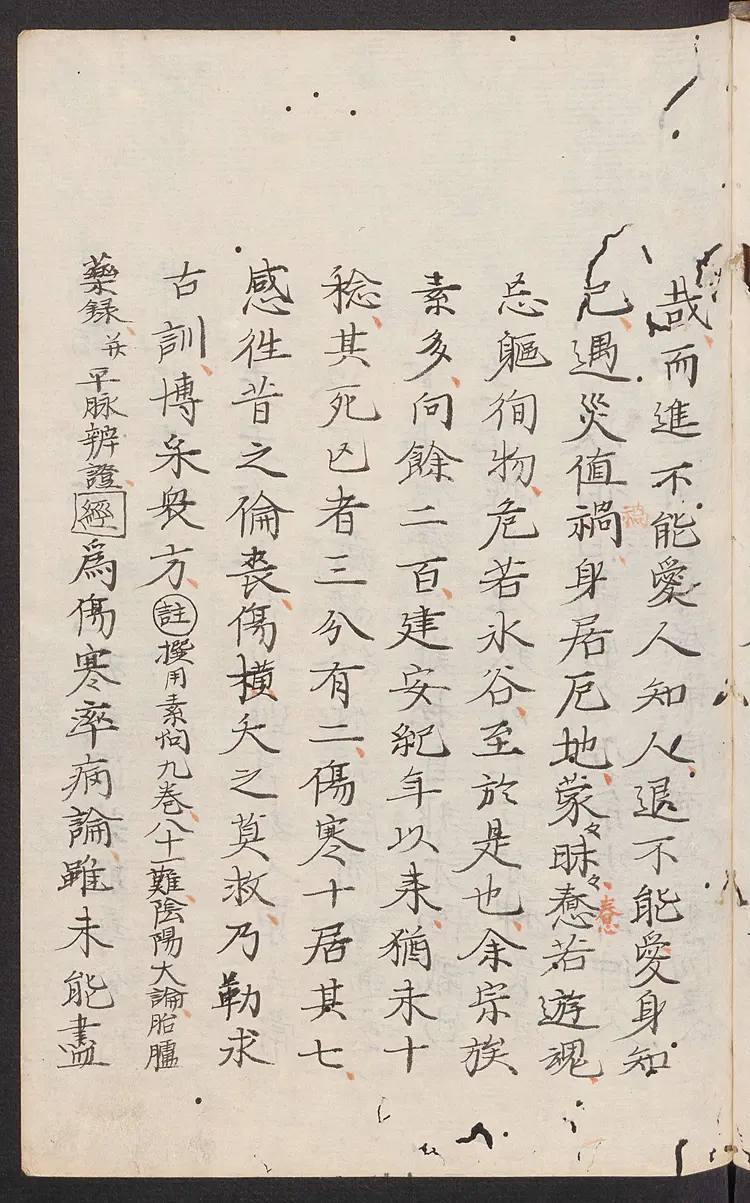 哉而進不能愛人知人退不能愛身知
己遇災值禍身居厄地蒙々昧々惷若遊魂
禍
惷
忘軀徇物危若氷谷至於是也余宗族
素多向餘二百建安紀年以来猶未十
稔其死亡者三分有二傷寒十居其七
感徃昔之倫喪傷橫夭之莫救乃勤求
古訓博采衆方註撰用素問九卷八十一難陰陽大論胎臚
藥録并平脉辨證經爲傷寒卒病論雖未能盡